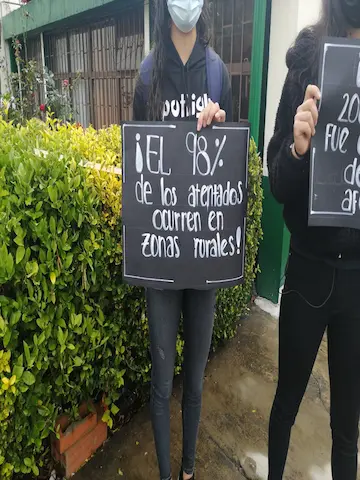 ¡EL 98%
de los atentados
ocurren en
zonas rurales!
FUE
de